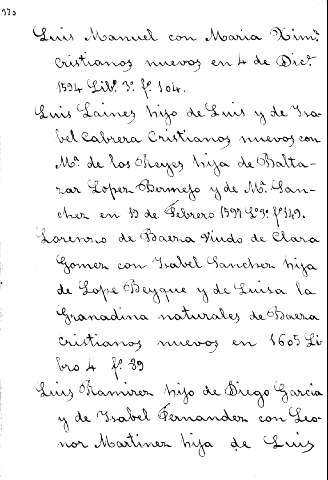 Luis Manuel con Maria Ximz.
cristianos nuevos en 4 de Dic.e
1594 Lib.o 3.o f.o 104.
Luis Lainez hijo de Luis y de Isa-
bel Cabrera Cristianos nuevos con
M.a de los Reyes hija de Balta-
zar Lopez Bermejo y de M.a San-
chez en 13 de Febrero 1597 L.o 3.o f.o 149.
Lorenzo de Baeza viudo de Clara
Gomez con Isabel Sanchez hija
de Lope Beyque y de Luisa la
Granadina naturales de Baeza
cristianos nuevos en 1605 Li
bro 4 f.o 89
Luis Ramirez hijo de Diego Garcia
y de Isabel Fernandez con Leo-
nor Martinez hija de Luis